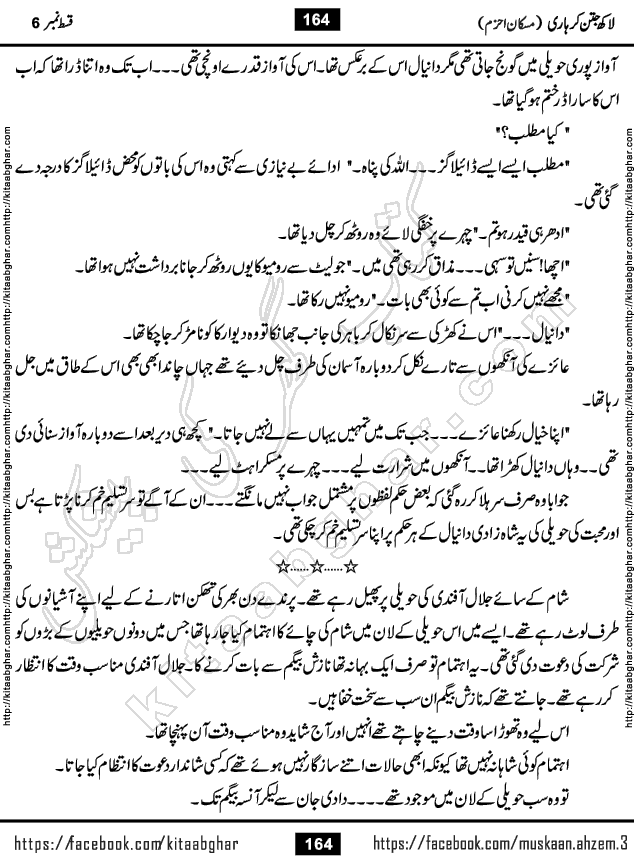 لاکھ جتن کر ہاری (مسکان احزم) 164 قسط نمبر 6
آواز پوری حویلی میں گونج جاتی تھی مگر دانیال اس کے برعکس تھا۔ اس کی آواز قدرے اونچی تھی۔۔۔ اب تک وہ اتنا ڈرا تھا کہ اب
اس کا سارا ڈر ختم ہو گیا تھا۔
"کیا مطلب؟"
"مطلب ایسے ایسے ڈائیلاگز۔۔۔ اللہ کی پناہ۔" ادائے بے نیازی سے کہتی وہ اس کی باتوں کو محض ڈائیلاگز کا درجہ دے
گئی تھی۔
"ادھر ہی قید رہو تم۔" چہرے پر خفگی لائے وہ روٹھ کر چل دیا تھا۔
"اچھا! سنیں تو سہی۔۔۔ مذاق کر رہی تھی میں۔" جولیٹ سے رومیو کا یوں روٹھ کر جانا برداشت نہیں ہوا تھا۔
"مجھے نہیں کرنی اب تم سے کوئی بھی بات۔" رومیو نہیں رکا تھا۔
"دانیال۔۔۔" اس نے کھڑکی سے سر نکال کر باہر کی جانب جھانکا تو وہ دیوار کا کونا مڑ کر جا چکا تھا۔
عائزے کی آنکھوں سے تارے نکل کر دوبارہ آسمان کی طرف چل دیئے تھے جہاں چاند ابھی بھی اس کے طاق میں جل
رہا تھا۔
"اپنا خیال رکھنا عائزے۔۔۔ جب تک میں تمہیں یہاں سے لے نہیں جاتا۔" کچھ ہی دیر بعد اسے دوبارہ آواز سنائی دی
تھی۔۔ وہاں دانیال کھڑا تھا۔۔ آنکھوں میں شرارت لیے۔۔۔ چہرے پر مسکراہٹ لیے۔۔۔
جوابا وہ صرف سر ہلا کر رہ گئی کہ بعض حکم لفظوں پر مشتمل جواب نہیں مانگتے۔۔۔ ان کے آگے تو سر تسلیم خم کرنا پڑتا ہے بس
اور محبت کی حویلی کی یہ شاہ زادی دانیال کے ہر حکم پر اپنا سر تسلیم خم کر چکی تھی۔
☆......☆......☆
شام کے سائے جلال آفندی کی حویلی پر پھیل رہے تھے۔ پرندے دن بھر کی تھکن اتارنے کے لیے اپنے آشیانوں کی
طرف لوٹ رہے تھے۔ ایسے میں اس حویلی کے لان میں شام کی چائے کا اہتمام کیا جا رہا تھا جس میں دونوں حویلیوں کے بڑوں کو
شرکت کی دعوت دی گئی تھی۔ یہ اہتمام تو صرف ایک بہانہ تھا نازش بیگم سے بات کرنے کا۔ جلال آفندی مناسب وقت کا انتظار
کر رہے تھے۔ جانتے تھے کہ نازش بیگم ان سب سے سخت خفا ہیں۔
اس لیے وہ تھوڑا سا وقت دینے چاہتے تھے انہیں اور آج شاید وہ مناسب وقت آن پہنچا تھا۔
اہتمام کوئی شاہانہ نہیں تھا کیونکہ ابھی حالات اتنے سازگار نہیں ہوئے تھے کہ کسی شاندار دعوت کا انتظام کیا جاتا۔
تو وہ سب حویلی کے لان میں موجود تھے۔۔۔۔ دادی جان سے لیکر آنسہ بیگم تک۔
https://facebook.com/kitaabghar 164 https://facebook.com/muskaan.ahzem.3
http://kitaabghar.com http://kitaabghar.com http://kitaabghar.com http://kitaabghar.com
http://kitaabghar.com http://kitaabghar.com http://kitaabghar.com http://kitaabghar.com
کتاب گھر کی پیشکش
kitaabghar.com